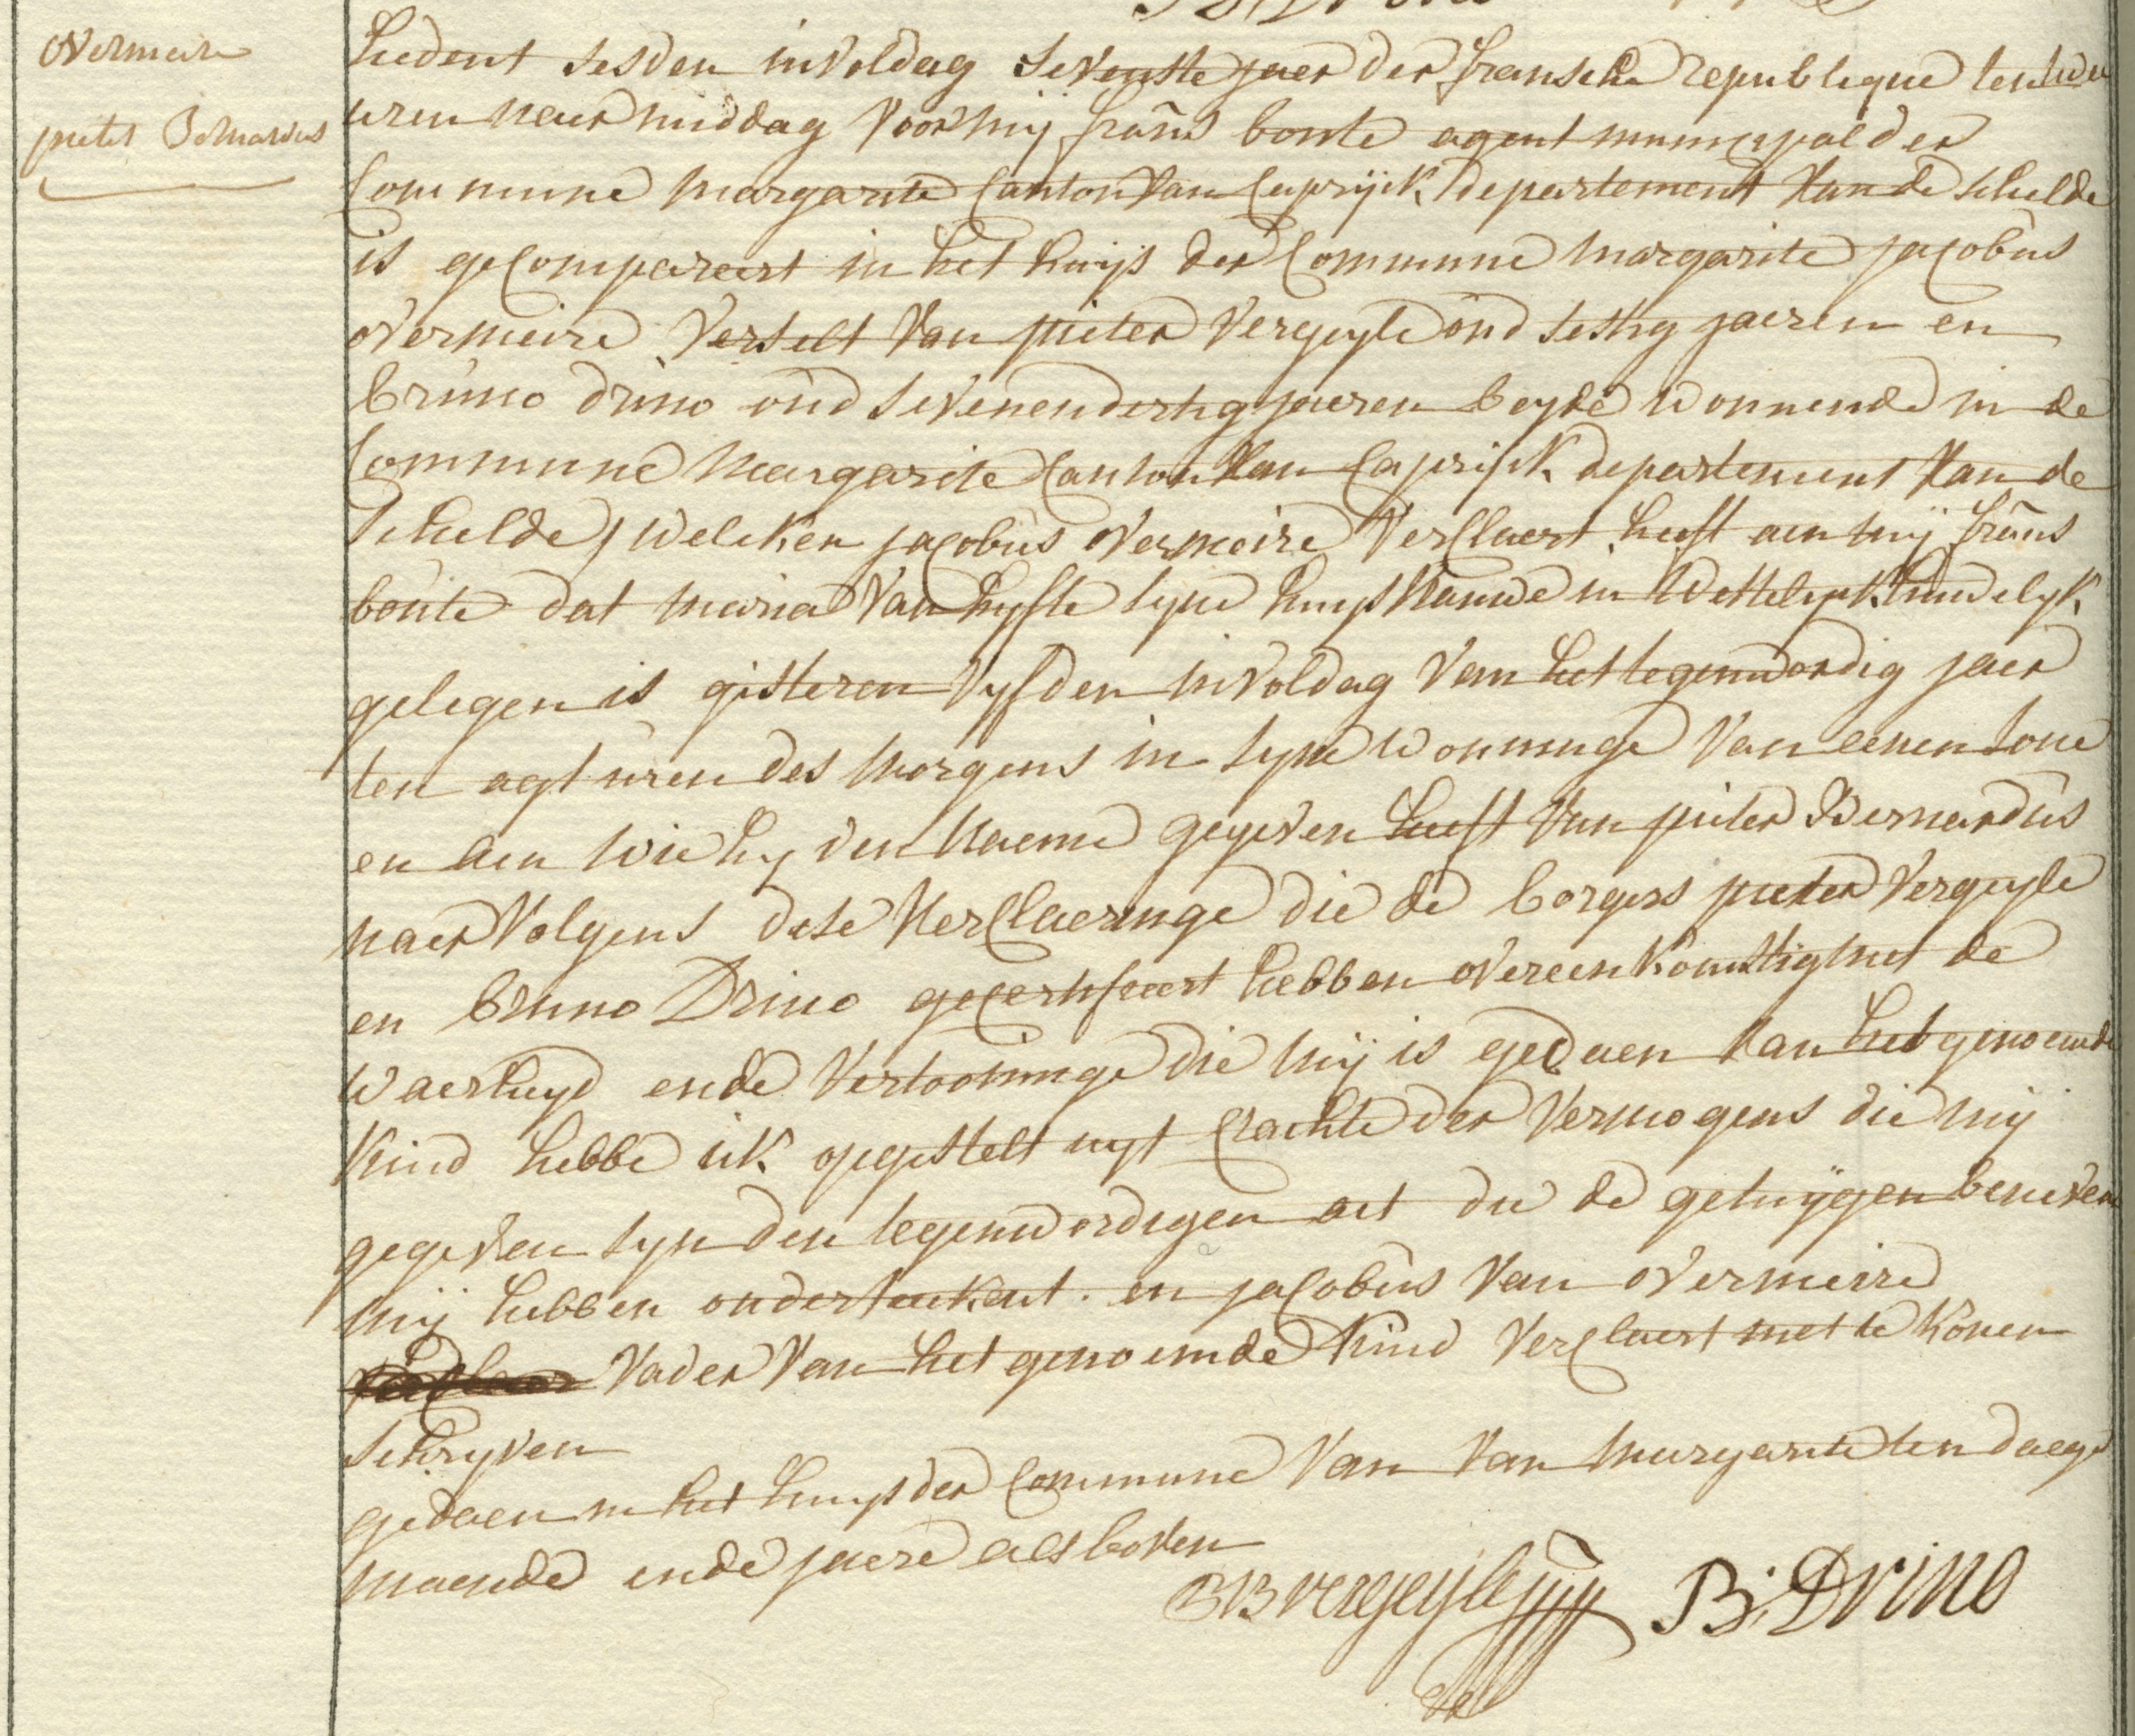 overmeire
pieter Bernardus
hedent sesden involdag sevenste jaer der fransche republique ten twee
uren naer middag voor mij frans bonte agent municipal der
Commune Margarite Canton van Caprijck departement van de schelde
is geCompareert in het huijs der Commune Margarite jacobus
overmeire verselt van pieter vergeyle oud sestig jaeren en
bruno drino oud sevenendertig jaeren beyde wonnende in de
Commune Margarite Canton van Caprijck departement van de
schelde, welcken jacobus overmeire verClaert heeft aen mij frans
bonte dat maria van hyfte syne huysvrauwe in wettelyck houdelyk
gelegen is gisteren vyfden involdag van het tegenwordig jaer
ten agt uren des morgens in syne wonninge van eenen sone
en aen wie hy den naeme gegeven heeft van pieter Bernardus
naer volgens dese verClaeringe die de borgers pieter vergeyle
en bruno Drino geCertifieert hebben overeenkomstig met de
waerheyd ende vertooninge die mij is gedaen van het genoemde
kind hebbe ik opgestelt uyt Crachte der vermogens die mij
gegeven syn den tegenwordigen act die de getuijgen beneven
mij hebben onderteekent. en jacobus van overmeire
vader van het genoemde kind verClaert niet te konen
schryven
gedaen in het huys der Commune van van Margarite ten daege
maende ende jaere als boven
vergeyle B: Drino